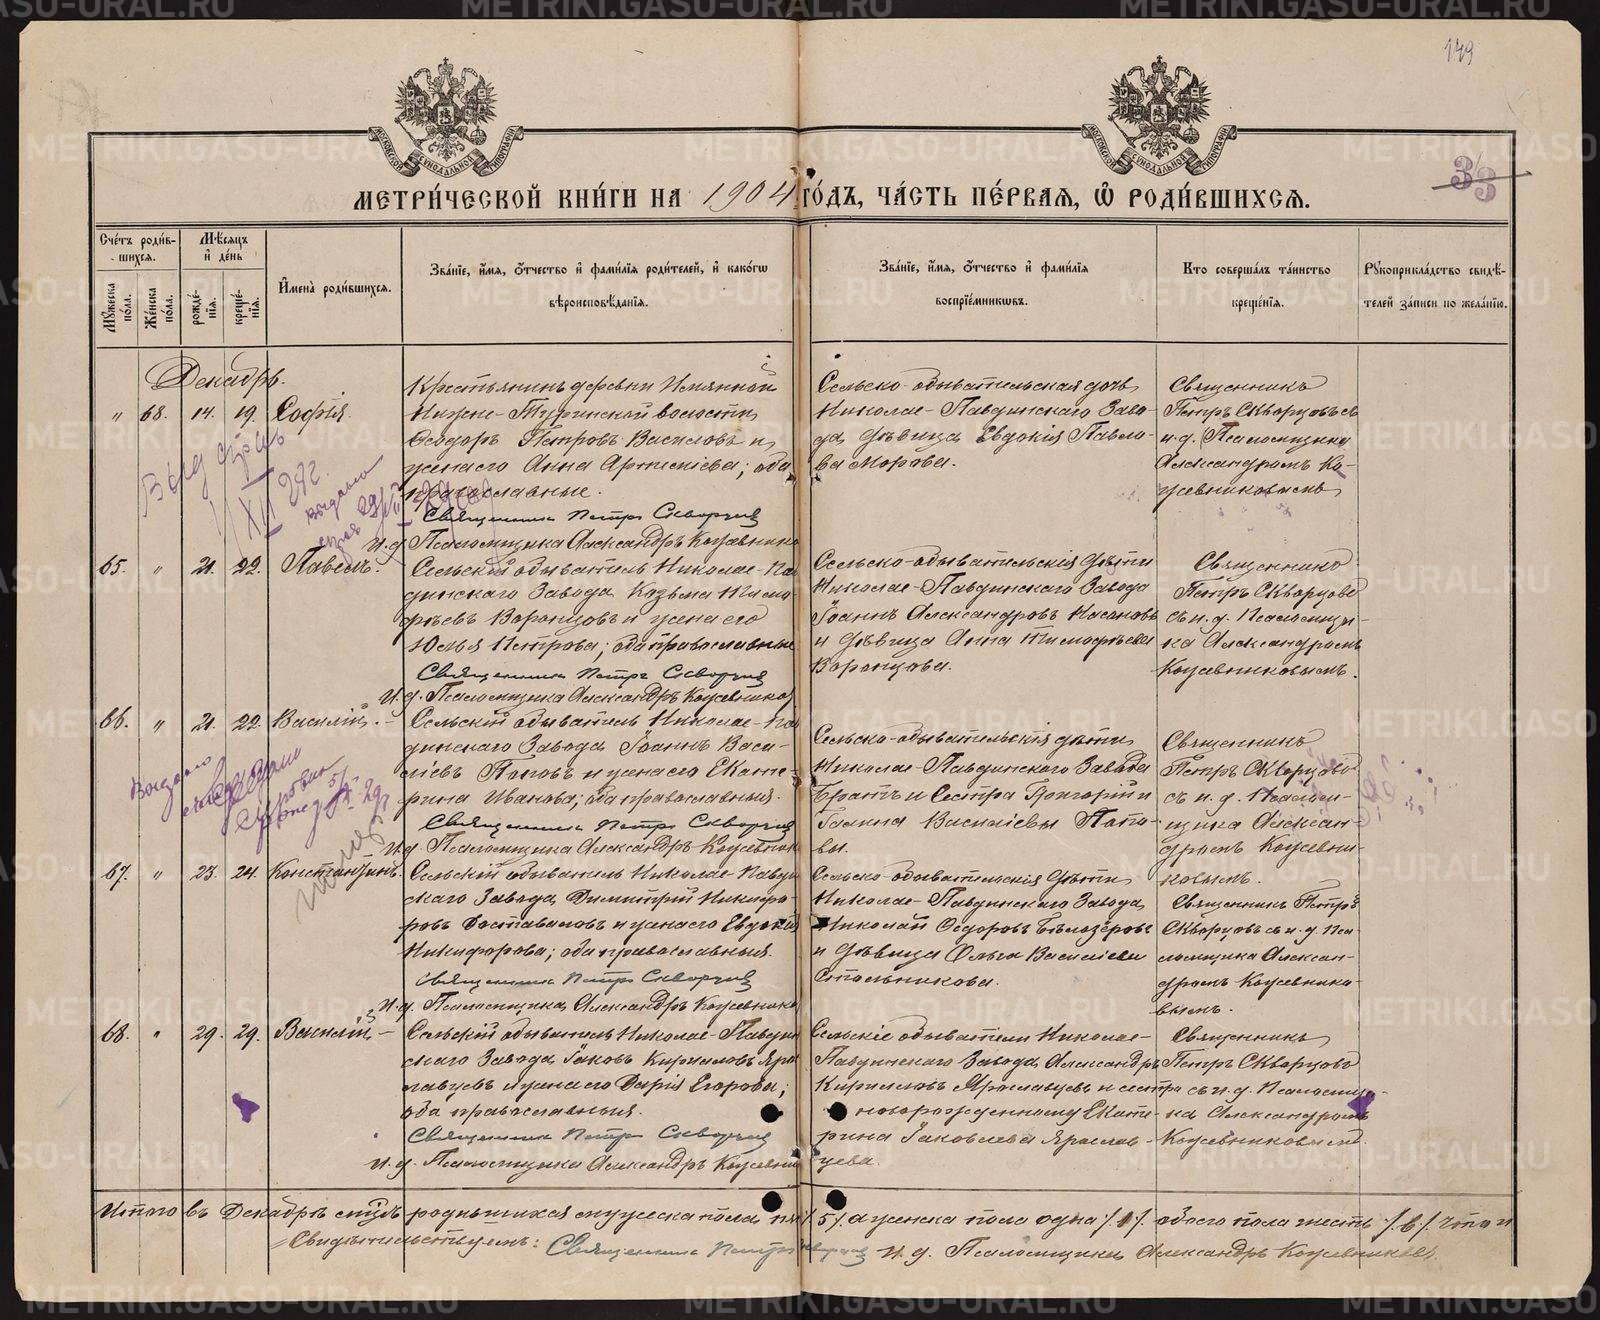 149
33
МОСКОВСКОЙ СѴНОДАЛЬНОЙ ТИПОГРАФІИ
МОСКОВСКОЙ СѴНОДАЛЬНОЙ ТИПОГРАФІИ
МЕТРИ́ЧЕСКОЙ КНИ́ГИ НА 1904 ГО́ДЪ, ЧА́СТЬ ПЕ́РВАЯ, Ѽ РОДИ́ВШИХСЯ.
Сче́тъ роди́в-
шихся.
Мѣ́сяцъ
и҆ де́нь
Мꙋ́жеска
по́ла.
Же́нска
по́ла.
рожде́-
нїѧ.
креще́-
нїѧ.
И҆мена̀ роди́вшихся.
Зва́нїе, и҆́мя, ѻ҆́тчество и҆ фами́лїѧ роди́телей, и҆ како́гѡ
вѣроисповѣ́данїѧ.
Зва́нїе, и҆́мя, ѻ҆́тчество и҆ фами́лїѧ
воспрїе́мникѡвъ.
Кто соверша́лъ та́инство
креще́нїѧ.
Рꙋкоприкла́дство свидѣ́-
телей за́писи по жела́нїю.
Декабрь.
" 68. 14. 19. Софія.
Крестьянинъ деревни Именной
Нижне-Туринской волости,
Ѳеодоръ Петровъ Василовъ и
жена его Анна Артемиева; оба
православные.
Священникъ Петръ Скворцовъ
И. д. Псаломщика Александръ Кожевников
Сельско-обывательская дочь
Николае-Павдинскаго Заво-
да дѣвица Евдокія Павло-
ва Морова.
Священникъ
Петръ Скворцовъ съ
и. д. Псаломщика
Александромъ Ко-
жевниковымъ
65. " 21. 22. Павелъ.
Сельскій обыватель Николае-Пав
динскаго Завода Козьма Тимо-
фѣевъ Воронцовъ и жена его
Юлія Петрова; оба православные
Священникъ Петръ Скворцовъ
И. д. Псаломщика Александръ Кожевников
Сельско-обывательскія дѣти
Николае-Павдинскаго Завода
Іоаннъ Александровъ Насоновъ
и дѣвица Анна Тимофѣева
Воронцова.
Священникъ
Петръ Скворцовъ
съ и. д. Псаломщи-
ка Александромъ
Кожевниковымъ.
66. " 21. 22. Василій. –
Сельскій обыватель Николае-Пав
динскаго Завода Іоаннъ Васи-
ліевъ Поповъ и жена его Екате-
рина Иванова; оба православныя.
Священникъ Петръ Скворцовъ
И. д. Псаломщика Александръ Кожевник
Сельско-обывательскія дѣти
Николае-Павдинскаго Завода
Братъ и Сестра Григорій и
Галина Василіевы Попо-
вы.
Священникъ
Петръ Скворцовъ
съ и. д. Псалом-
щика Алексан-
дромъ Кожевни-
ковымъ.
67. " 23. 24. Константинъ.
Сельскій обыватель Николае-Павдин
скаго Завода Димитрій Никифо-
ровъ Доставаловъ и жена его Евдокія
Никифорова; оба православныя.
Священникъ Петръ Скворцовъ
И. д. Псаломщика Александръ Кожевнико
Сельско-обывательскія дѣти
Николае-Павдинскаго Завода
Николай Ѳедоровъ Бѣлозёровъ
и дѣвица Ольга Василіева
Стольникова.
Священникъ Петръ
Скворцовъ съ и. д. Пса-
ломщика Алексан-
дромъ Кожевнико-
вымъ.
68. " 29. 29. Василій –
Сельскій обыватель Николае-Павдин
скаго Завода Іаковъ Кирилловъ Яро
славцевъ и жена его Дарія Егорова;
оба православныя.
Священникъ Петръ Скворцовъ
И. д. Псаломщика Александръ Кожевник
Сельскіе обыватели Николае-
Павдинскаго Завода Александръ
Кирилловъ Ярославцевъ и сестра
новорожденному Екате-
рина Іаковлева Ярослав-
цева.
Священникъ
Петръ Скворцовъ
съ и. д. Псаломщи-
ка Александромъ
Кожевниковымъ
Итого въ Декабрѣ мѣсяцѣ родившихся мужеска пола пять /5/ а женска пола одна /1/. обоего пола шесть /6/. что и
Свидѣтельствуемъ: Священникъ Петръ Скворцовъ И. д. Псаломщика Александръ Кожевниковъ.
METRIKI.GASO-URAL.RU